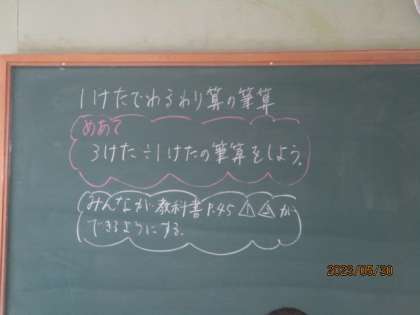 1けたでわるわり算の筆算
めあて
3けた÷1けたの筆算をしよう。
みんなが教科書P.45 △1 △2 が
できるようにする。
2023/05/30